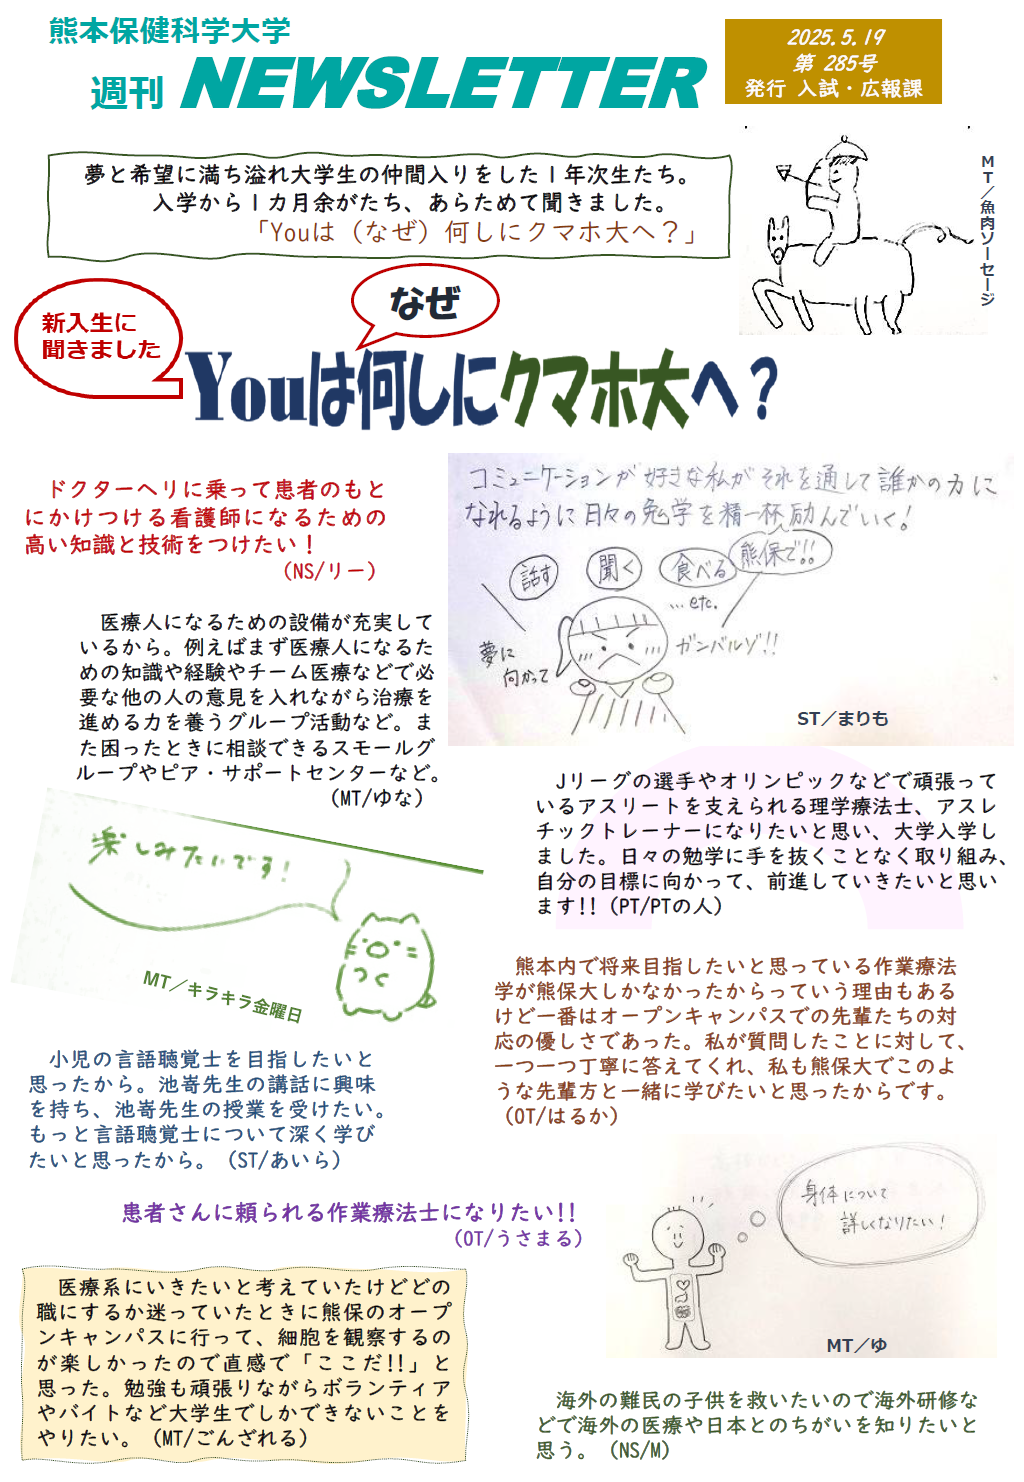 熊本保健科学大学
週刊 NEWSLETTER
2025.5.19
第 285号
発行 入試・広報課
夢と希望に満ち溢れ大学生の仲間入りをした1年次生たち。
入学から1カ月余がたち、あらためて聞きました。
「Youは（なぜ）何しにクマホ大へ？」
MT／魚肉ソーセージ
新入生に
聞きました
なぜ
Youは何しにクマホ大へ？
ドクターヘリに乗って患者のもと
にかけつける看護師になるための
高い知識と技術をつけたい！
（NS/リー）
コミュニケーションが好きな私がそれを通して誰かの力に
なれるように日々の勉学を精一杯励んでいく！
話す
聞く
食べる
熊保で!!
… etc.
夢に
向かって
ガンバルゾ!!
ST／まりも
医療人になるための設備が充実して
いるから。例えばまず医療人になるた
めの知識や経験やチーム医療などで必
要な他の人の意見を入れながら治療を
進める力を養うグループ活動など。ま
た困ったときに相談できるスモールグ
ループやピア・サポートセンターなど。
（MT/ゆな）
楽しみたいです！
MT／キラキラ金曜日
Jリーグの選手やオリンピックなどで頑張って
いるアスリートを支えられる理学療法士、アスレ
チックトレーナーになりたいと思い、大学入学し
ました。日々の勉学に手を抜くことなく取り組み、
自分の目標に向かって、前進していきたいと思い
ます!!（PT/PTの人）
熊本内で将来目指したいと思っている作業療法
学が熊保大しかなかったからっていう理由もある
けど一番はオープンキャンパスでの先輩たちの対
応の優しさであった。私が質問したことに対して、
一つ一つ丁寧に答えてくれ、私も熊保大でこのよ
うな先輩方と一緒に学びたいと思ったからです。
（OT/はるか）
小児の言語聴覚士を目指したいと
思ったから。池嵜先生の講話に興味
を持ち、池嵜先生の授業を受けたい。
もっと言語聴覚士について深く学び
たいと思ったから。（ST/あいら）
患者さんに頼られる作業療法士になりたい!!
（OT/うさまる）
身体について
詳しくなりたい！
MT／ゆ
医療系にいきたいと考えていたけどどの
職にするか迷っていたときに熊保のオープ
ンキャンパスに行って、細胞を観察するの
が楽しかったので直感で「ここだ!!」と
思った。勉強も頑張りながらボランティア
やバイトなど大学生でしかできないことを
やりたい。（MT/ごんざれる）
海外の難民の子供を救いたいので海外研修な
どで海外の医療や日本とのちがいを知りたいと
思う。（NS/M）